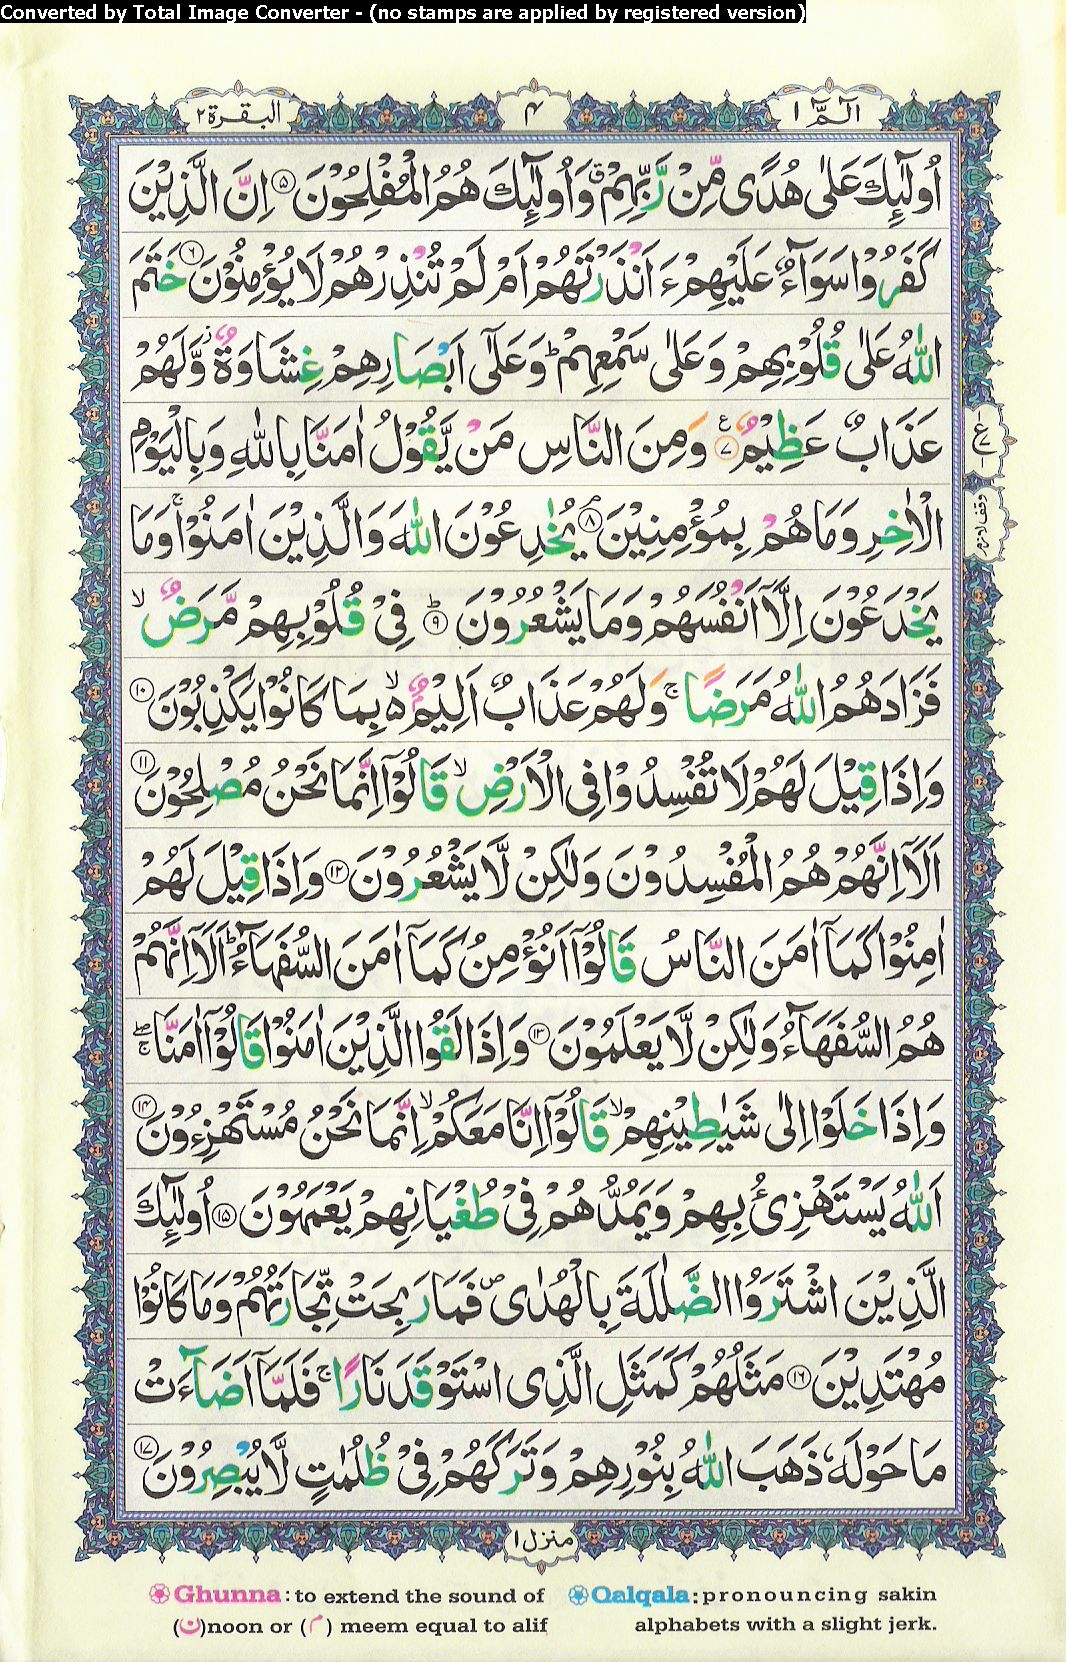 Converted by Total Image Converter - (no stamps are applied by registered version)
الٓـمّٓ ١
۴
البقرة ٢
اُولٰٓئِكَ عَلٰی هُدًی مِّنْ رَّبِّهِمْ ۗ وَاُولٰٓئِكَ هُمُ الْمُفْلِحُوْنَ ۝۵ اِنَّ الَّذِیْنَ
كَفَرُوْا سَوَآءٌ عَلَیْهِمْ ءَاَنْذَرْتَهُمْ اَمْ لَمْ تُنْذِرْهُمْ لَا یُؤْمِنُوْنَ ۝۶ خَتَمَ
اللّٰهُ عَلٰی قُلُوْبِهِمْ وَعَلٰی سَمْعِهِمْ ؕ وَعَلٰۤی اَبْصَارِهِمْ غِشَاوَةٌ ؗ وَّلَهُمْ
عَذَابٌ عَظِیْمٌ ۝۷ وَمِنَ النَّاسِ مَنْ یَّقُوْلُ اٰمَنَّا بِاللّٰهِ وَبِالْیَوْمِ
الْاٰخِرِ وَمَا هُمْ بِمُؤْمِنِیْنَ ۘ۝۸ یُخٰدِعُوْنَ اللّٰهَ وَالَّذِیْنَ اٰمَنُوْا ۚ وَمَا
یَخْدَعُوْنَ اِلَّاۤ اَنْفُسَهُمْ وَمَا یَشْعُرُوْنَ ؕ۝۹ فِیْ قُلُوْبِهِمْ مَّرَضٌ ۙ
فَزَادَهُمُ اللّٰهُ مَرَضًا ۚ وَلَهُمْ عَذَابٌ اَلِیْمٌ ۙ۬ بِمَا كَانُوْا یَكْذِبُوْنَ ۝۱۰
وَاِذَا قِیْلَ لَهُمْ لَا تُفْسِدُوْا فِی الْاَرْضِ ۙ قَالُوْۤا اِنَّمَا نَحْنُ مُصْلِحُوْنَ ۝۱۱
اَلَاۤ اِنَّهُمْ هُمُ الْمُفْسِدُوْنَ وَلٰكِنْ لَّا یَشْعُرُوْنَ ۝۱۲ وَاِذَا قِیْلَ لَهُمْ
اٰمِنُوْا كَمَاۤ اٰمَنَ النَّاسُ قَالُوْۤا اَنُؤْمِنُ كَمَاۤ اٰمَنَ السُّفَهَآءُ ؕ اَلَاۤ اِنَّهُمْ
هُمُ السُّفَهَآءُ وَلٰكِنْ لَّا یَعْلَمُوْنَ ۝۱۳ وَاِذَا لَقُوا الَّذِیْنَ اٰمَنُوْا قَالُوْۤا اٰمَنَّا ۖۚ
وَاِذَا خَلَوْا اِلٰی شَیٰطِیْنِهِمْ ۙ قَالُوْۤا اِنَّا مَعَكُمْ ۙ اِنَّمَا نَحْنُ مُسْتَهْزِءُوْنَ ۝۱۴
اَللّٰهُ یَسْتَهْزِئُ بِهِمْ وَیَمُدُّهُمْ فِیْ طُغْیَانِهِمْ یَعْمَهُوْنَ ۝۱۵ اُولٰٓئِكَ
الَّذِیْنَ اشْتَرَوُا الضَّلٰلَةَ بِالْهُدٰی ۪ فَمَا رَبِحَتْ تِّجَارَتُهُمْ وَمَا كَانُوْا
مُهْتَدِیْنَ ۝۱۶ مَثَلُهُمْ كَمَثَلِ الَّذِی اسْتَوْقَدَ نَارًا ۚ فَلَمَّاۤ اَضَآءَتْ
مَا حَوْلَهٗ ذَهَبَ اللّٰهُ بِنُوْرِهِمْ وَتَرَكَهُمْ فِیْ ظُلُمٰتٍ لَّا یُبْصِرُوْنَ ۝۱۷
منزل ١
Ghunna: to extend the sound of
(ن)noon or (م) meem equal to alif
Qalqala: pronouncing sakin
alphabets with a slight jerk.